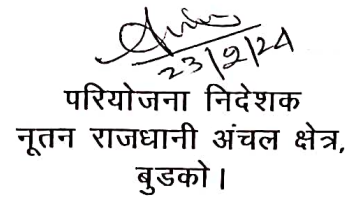 23/2/24
परियोजना निदेशक
नूतन राजधानी अंचल क्षेत्र,
बुडको।